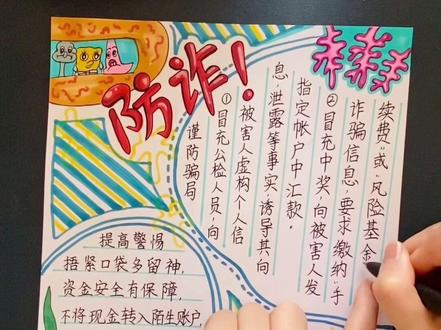 防诈!
谨防骗局
①冒充公检人员,向
被害人虚构个人信
息,泄露等事实,诱导其向
指定帐户中汇款。
②冒充中奖,向被害人发
诈骗信息,要求缴纳“手
续费”或“风险基金
提高警惕
捂紧口袋多留神,
资金安全有保障,
不将现金转入陌生账户